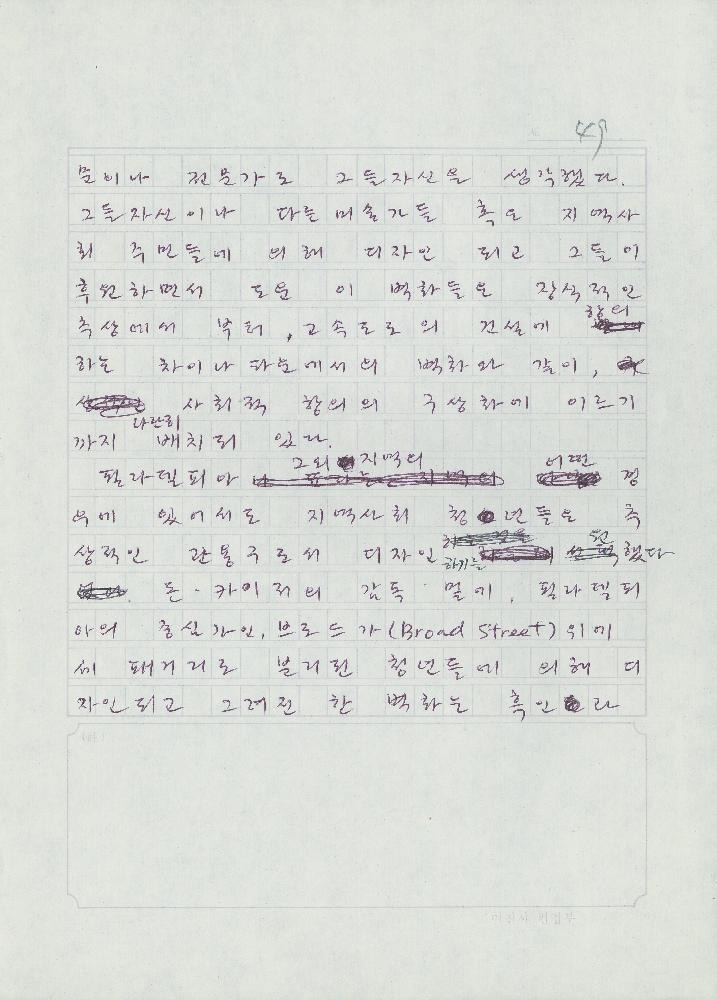 49
문이나 전문가로 그들자신을 생각했다.
그들자신이나 다른 미술가들 혹은 지역사
회 주민들에 의해 디자인 되고 그들이
후원하면서 도운 이 벽화들은 장식적인
추상에서 부터, 고속도로의 건설에 항의
하는 차이나타운에서의 벽화와 같이,
사회적 항의의 구상화에 이르기
까지 나란히 배치되 있다.
필라델피아 그외 지역의 어떤 경
우에 있어서도 지역사회 청년들은 추
상적인 관통구로서 디자인 하기는 원했다
돈·카이저의 감독 밑에, 필라델피
아의 중심가인, 브로드가(Broad Street) 위에
세 패거리로 불리런 청년들에 의해 디
자인되고 그려진 한 벽화는 흑인 라
미진사 편집부